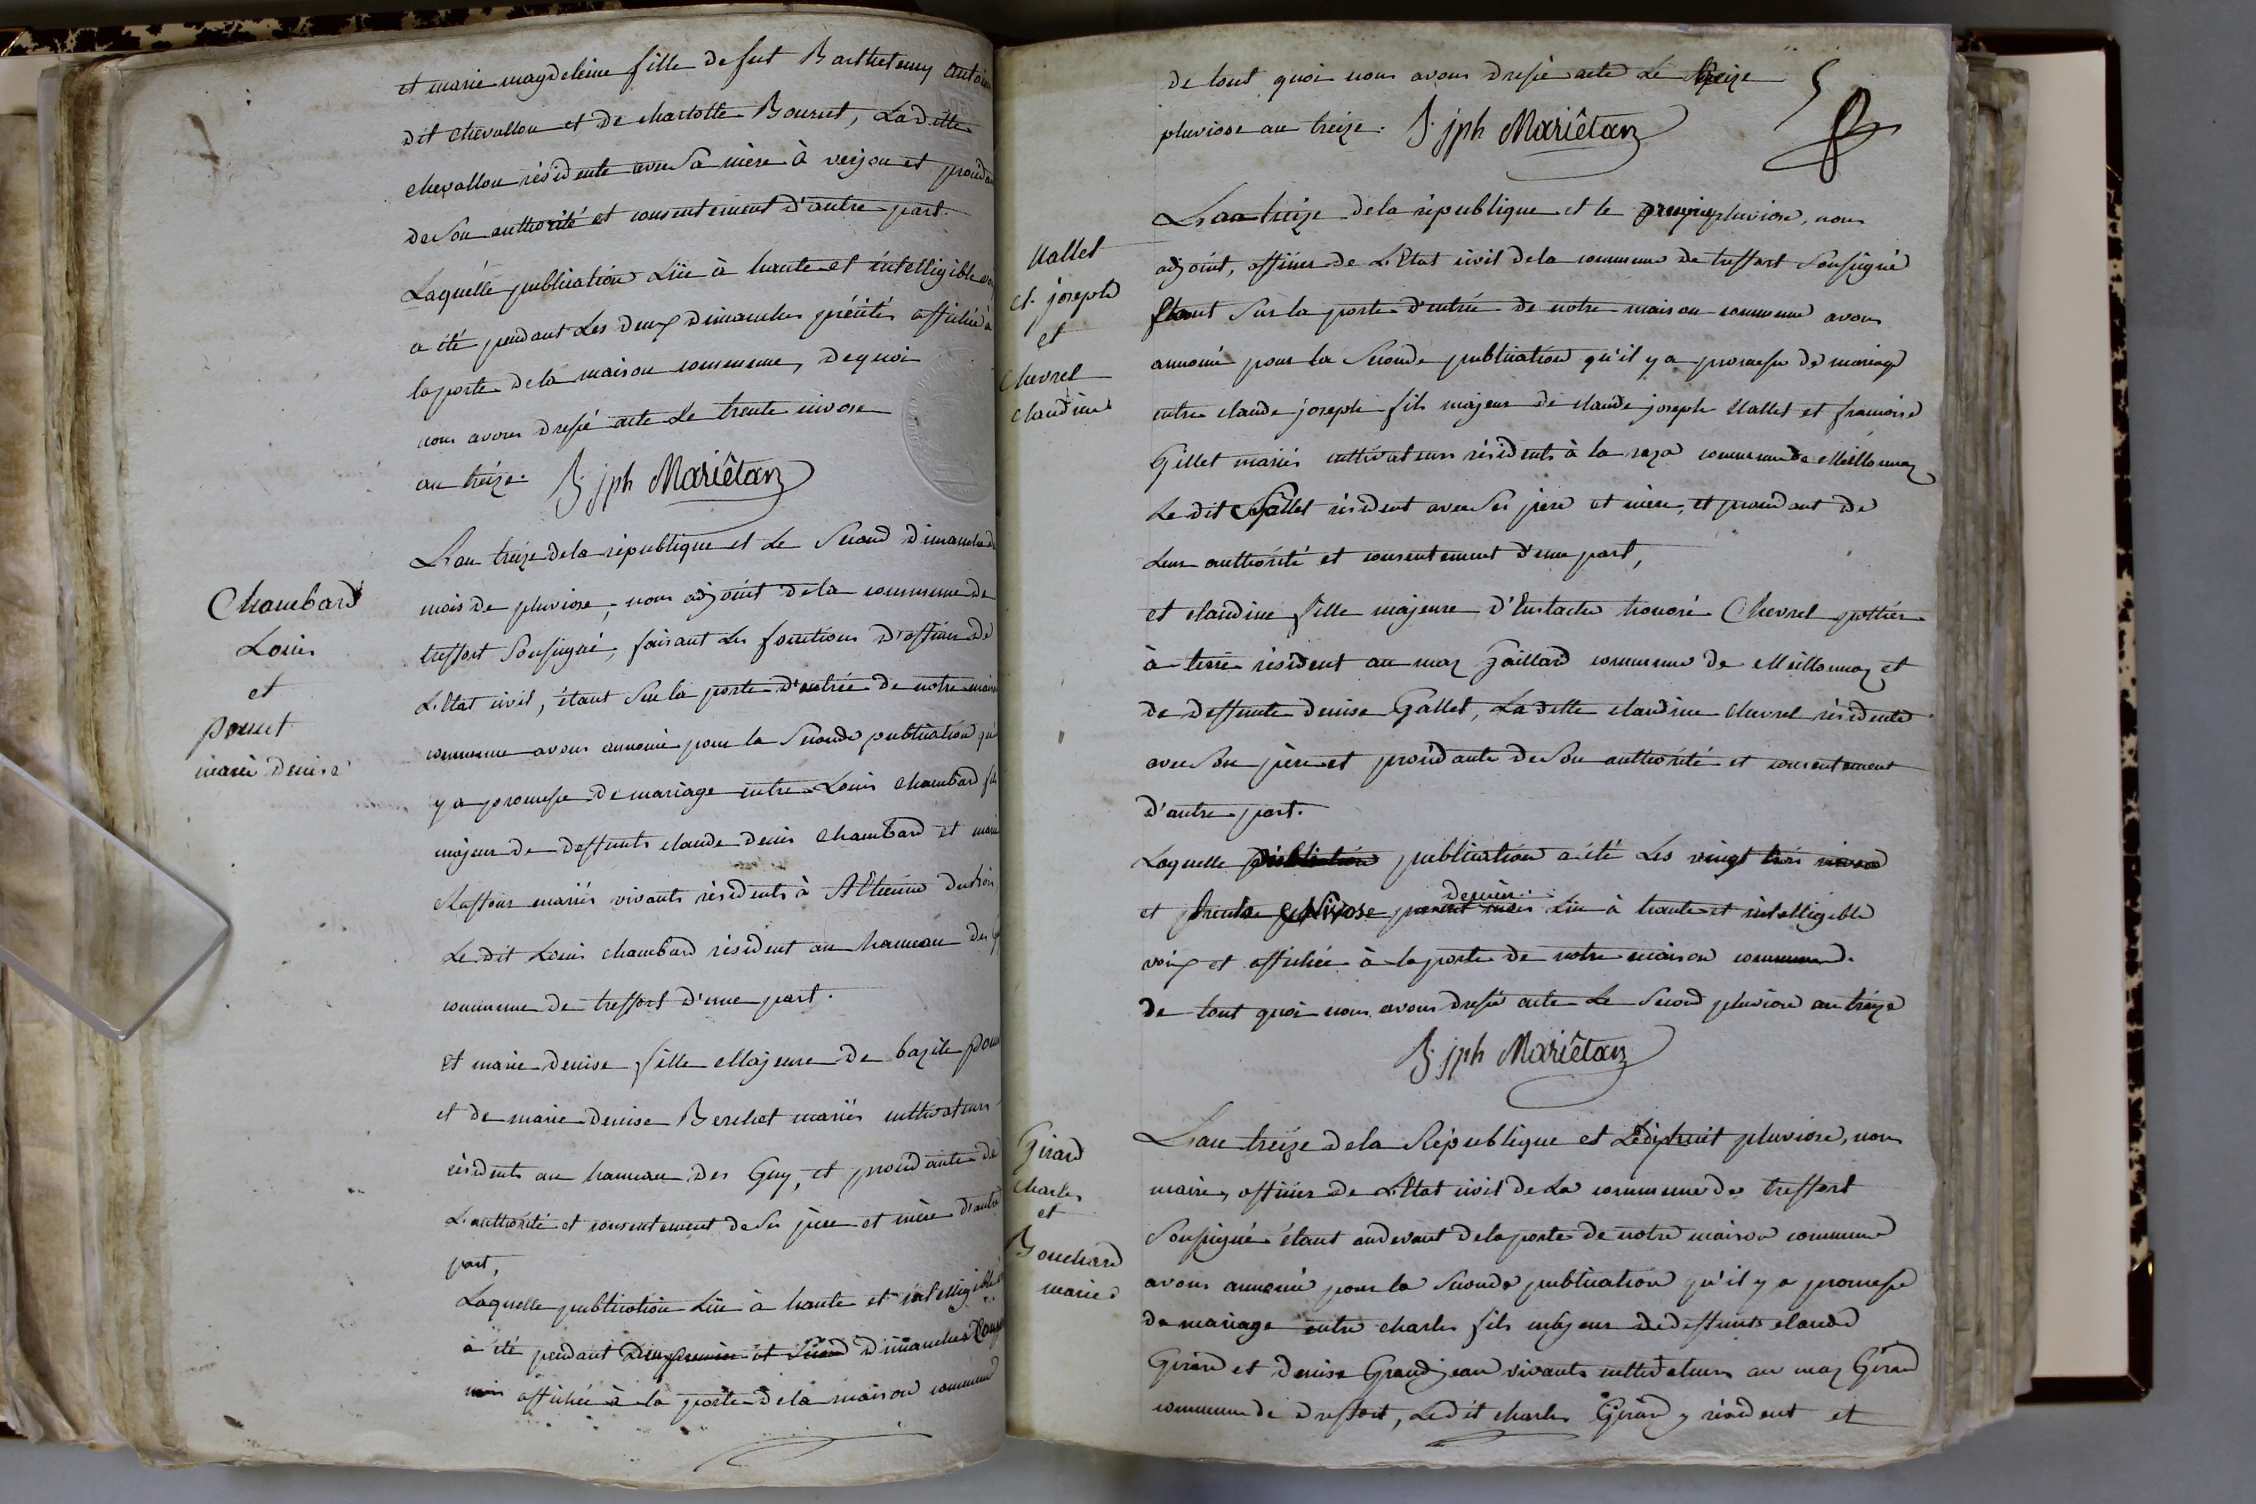 et marie magdeleine fille de feut Barthelemy antoine
dit chevallon et de charlotte Bournet, Ladite
chevallon résidente avec sa mère à verjon et procédante
de son authorité et consentement d'autre part.
Laquelle publication Lüe à haute et intelligible voix
a été pendant Les deux dimanches précités affichée à
la porte de la maison commune, de quoi
nous avons dressé acte Le trente nivose
an treize. B. jph Mariêtan
Chambard
Louis
et
ponset
marie denise
L'an treize de la république et Le second dimanche de
mois de pluviose, nous adjoint de la commune de
treffort soussigné, faisant Les fonctions d'officier de
L'Etat civil, étant sur la porte d'entrée de notre maison
commune avons annoncé pour la seconde publication qu'il
y a promesse de mariage entre Louis chambard fils
majeur de deffunts claude denis chambard et marie
mariés vivants résidents à St Etienne du bois,
Le dit Louis chambard résident au hameau des
commune de treffort d'une part.
et marie denise fille Majeure de bazile
et de marie denise Berchet mariés cultivateurs
résidents au hameau des Guy, et procédante de
L'authorité et consentement de ses père et mère d'autre
part,
Laquelle publication Lüe à haute et intelligible
a été pendant Les premier et second dimanches
mois affichée à la porte de la maison commune
de tout quoi nous avons dressé acte Le treize
pluviose an treize. B. jph Mariêtan
5
Uallet
cl. joseph
et
Chevrel
claudine
L'an treize de la république et le pluviose, nous
adjoint, officier de L'Etat civil de la commune de treffort soussigné
étant sur la porte d'entrée de notre maison commune avons
annoncé pour la seconde publication qu'il y a promesse de mariage
entre claude joseph fils majeur de claude joseph Uallet et francoise
Gillet mariés cultivateurs résidents à la raza commune de Meillonnaz
Le dit Uallet résident avec ses père et mère, et procédant de
Leur authorité et consentement d'une part,
et claudine fille majeure d'Eustache honoré Chevrel pottier
à terre résident au maz Gaillard commune de Meillonnaz et
de deffunte denise Gallet, La dette claudine chevrel résidente
avec son père et procédante de son authorité et consentement
d'autre part.
Laquelle publication publication a été Les vingt trois nivose
et trente Nivose present mois dernier Lüe à haute et intelligible
voix et affichée à la porte de notre maison commune.
de tout quoi nous avons dressé acte Le second pluviose an treize
B. jph Mariêtan
Girard
Charles
et
Bouchard
marie
L'an treize de la République et Le dixhuit pluviose, nous
maire, officier de L'Etat civil de La commune de treffort
soussigné étant au devant de la porte de notre maison commune
avons annoncé pour la seconde publication qu'il y a promesse
de mariage entre charles fils majeur de deffunts claude
Girard et denise Grandjean vivants cultivateurs au maz Girard
commune de dreffort, Le dit charles Girard y résident et